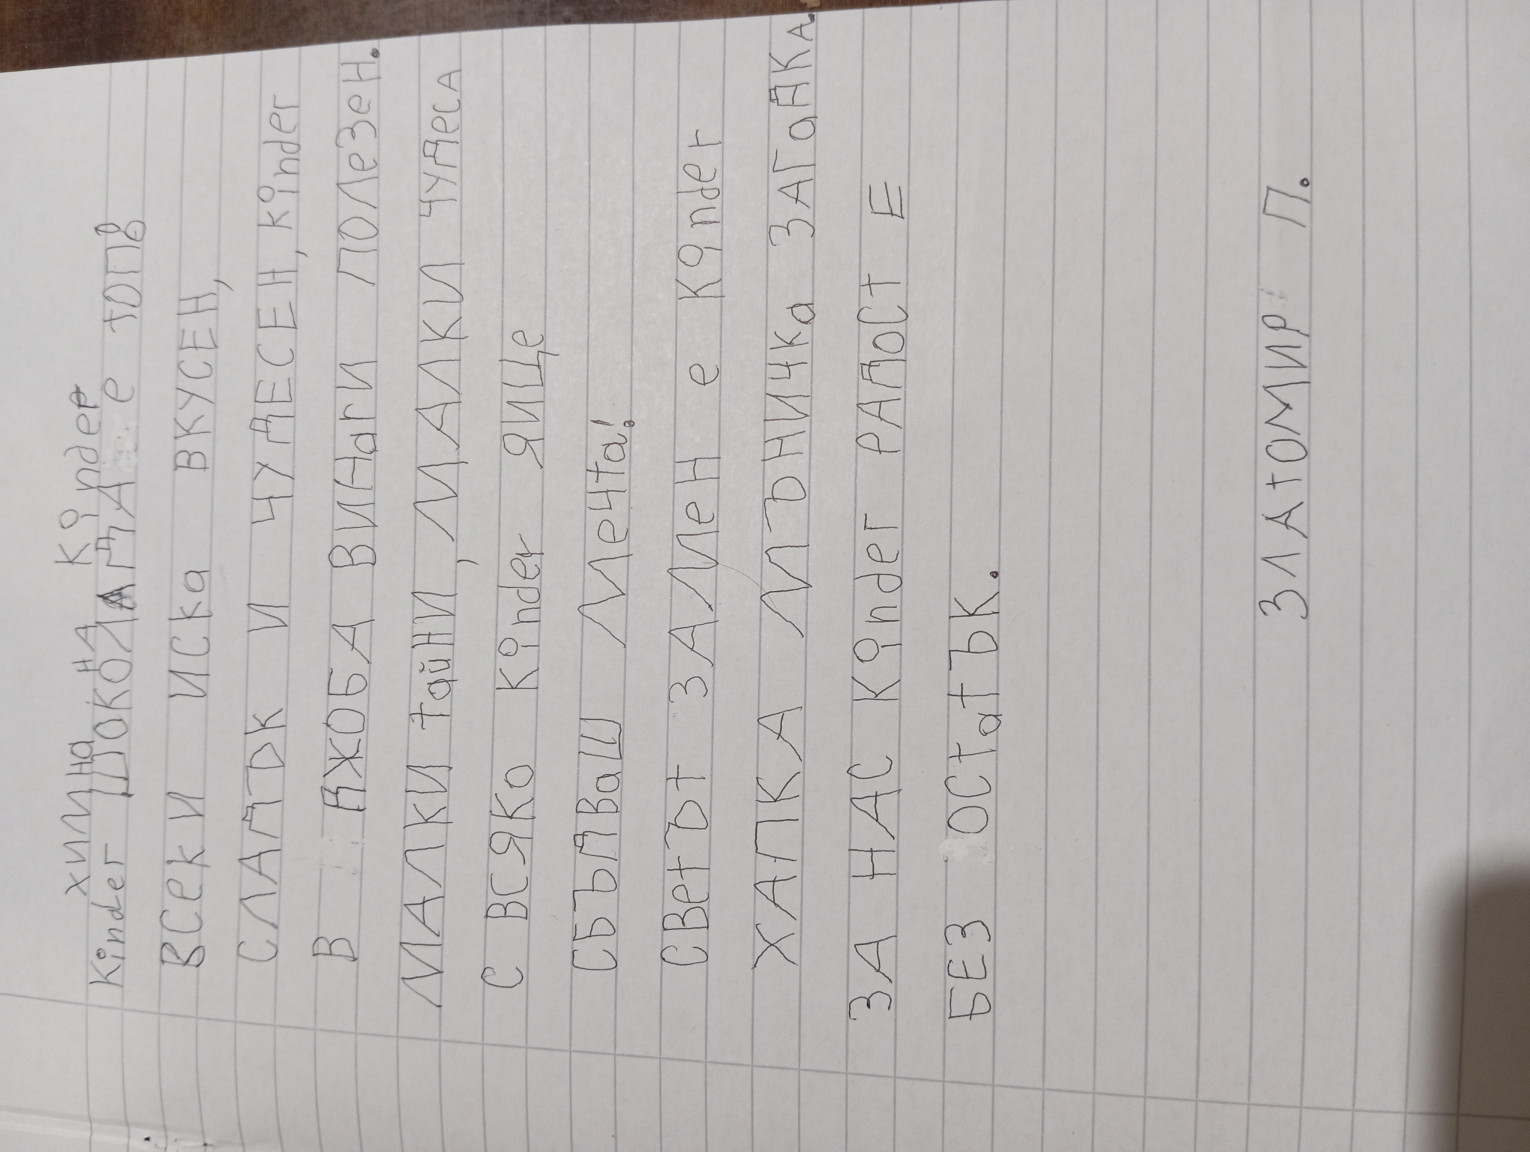 ХИМНА НА Kinder
Kinder ШОКОЛАДА е ТОПВ
ВСеКИ ИСКа ВКУСЕН,
СЛАДЪК И ЧУДЕСЕН, Kinder
В ДЖОБА ВИНаГИ ПОЛеЗеН.
МАЛКИ ТайНИ, МАЛКИ ЧУДеСА
С ВСЯКО Kinder ЯИЦе
СБЪДВаШ МеЧТа!
СВеТЪТ ЗА МеН е Kinder
ХАПКА МЪНИЧКа ЗАГаДКА
ЗА НАС Kinder РАДОСТ Е
БЕЗ ОСТаТЪК.
ЗЛАТОМИР П.